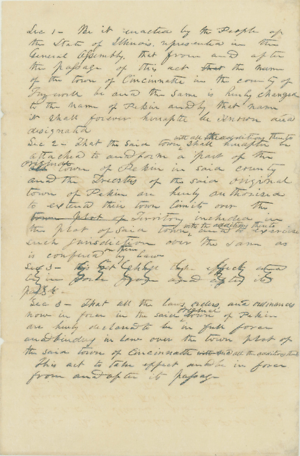 Sec 1 - Be it enacted by the People of
the State of Illinois, represented in the
General Assembly that from and after
the passage of this act that the name
of the town of Cincinnatti in the county of
Tazwell be and the same is hereby changed
to the name of Pekin and by that name
it shall forever hereafter be known and
designated
Sec 2 - That the said town shall hereafter be
attached to and form a part of the
original town of Pekin in said county
and the Trustees of the said original
town of Pekin are hereby authorised
to extend their town limits over the
town plat of Territory included in
the plat of said town and to exercise
such jurisdiction over the same as
is conferred by law
Sec 3 -
Sec 3 - That all the laws, orders, and ordinances
now in force in the said original town of Pekin
are hereby declared to be in full force
and binding in law over the town plat of
the said town of Cincinnatti
This act to take effect and be in force
from and after its passage